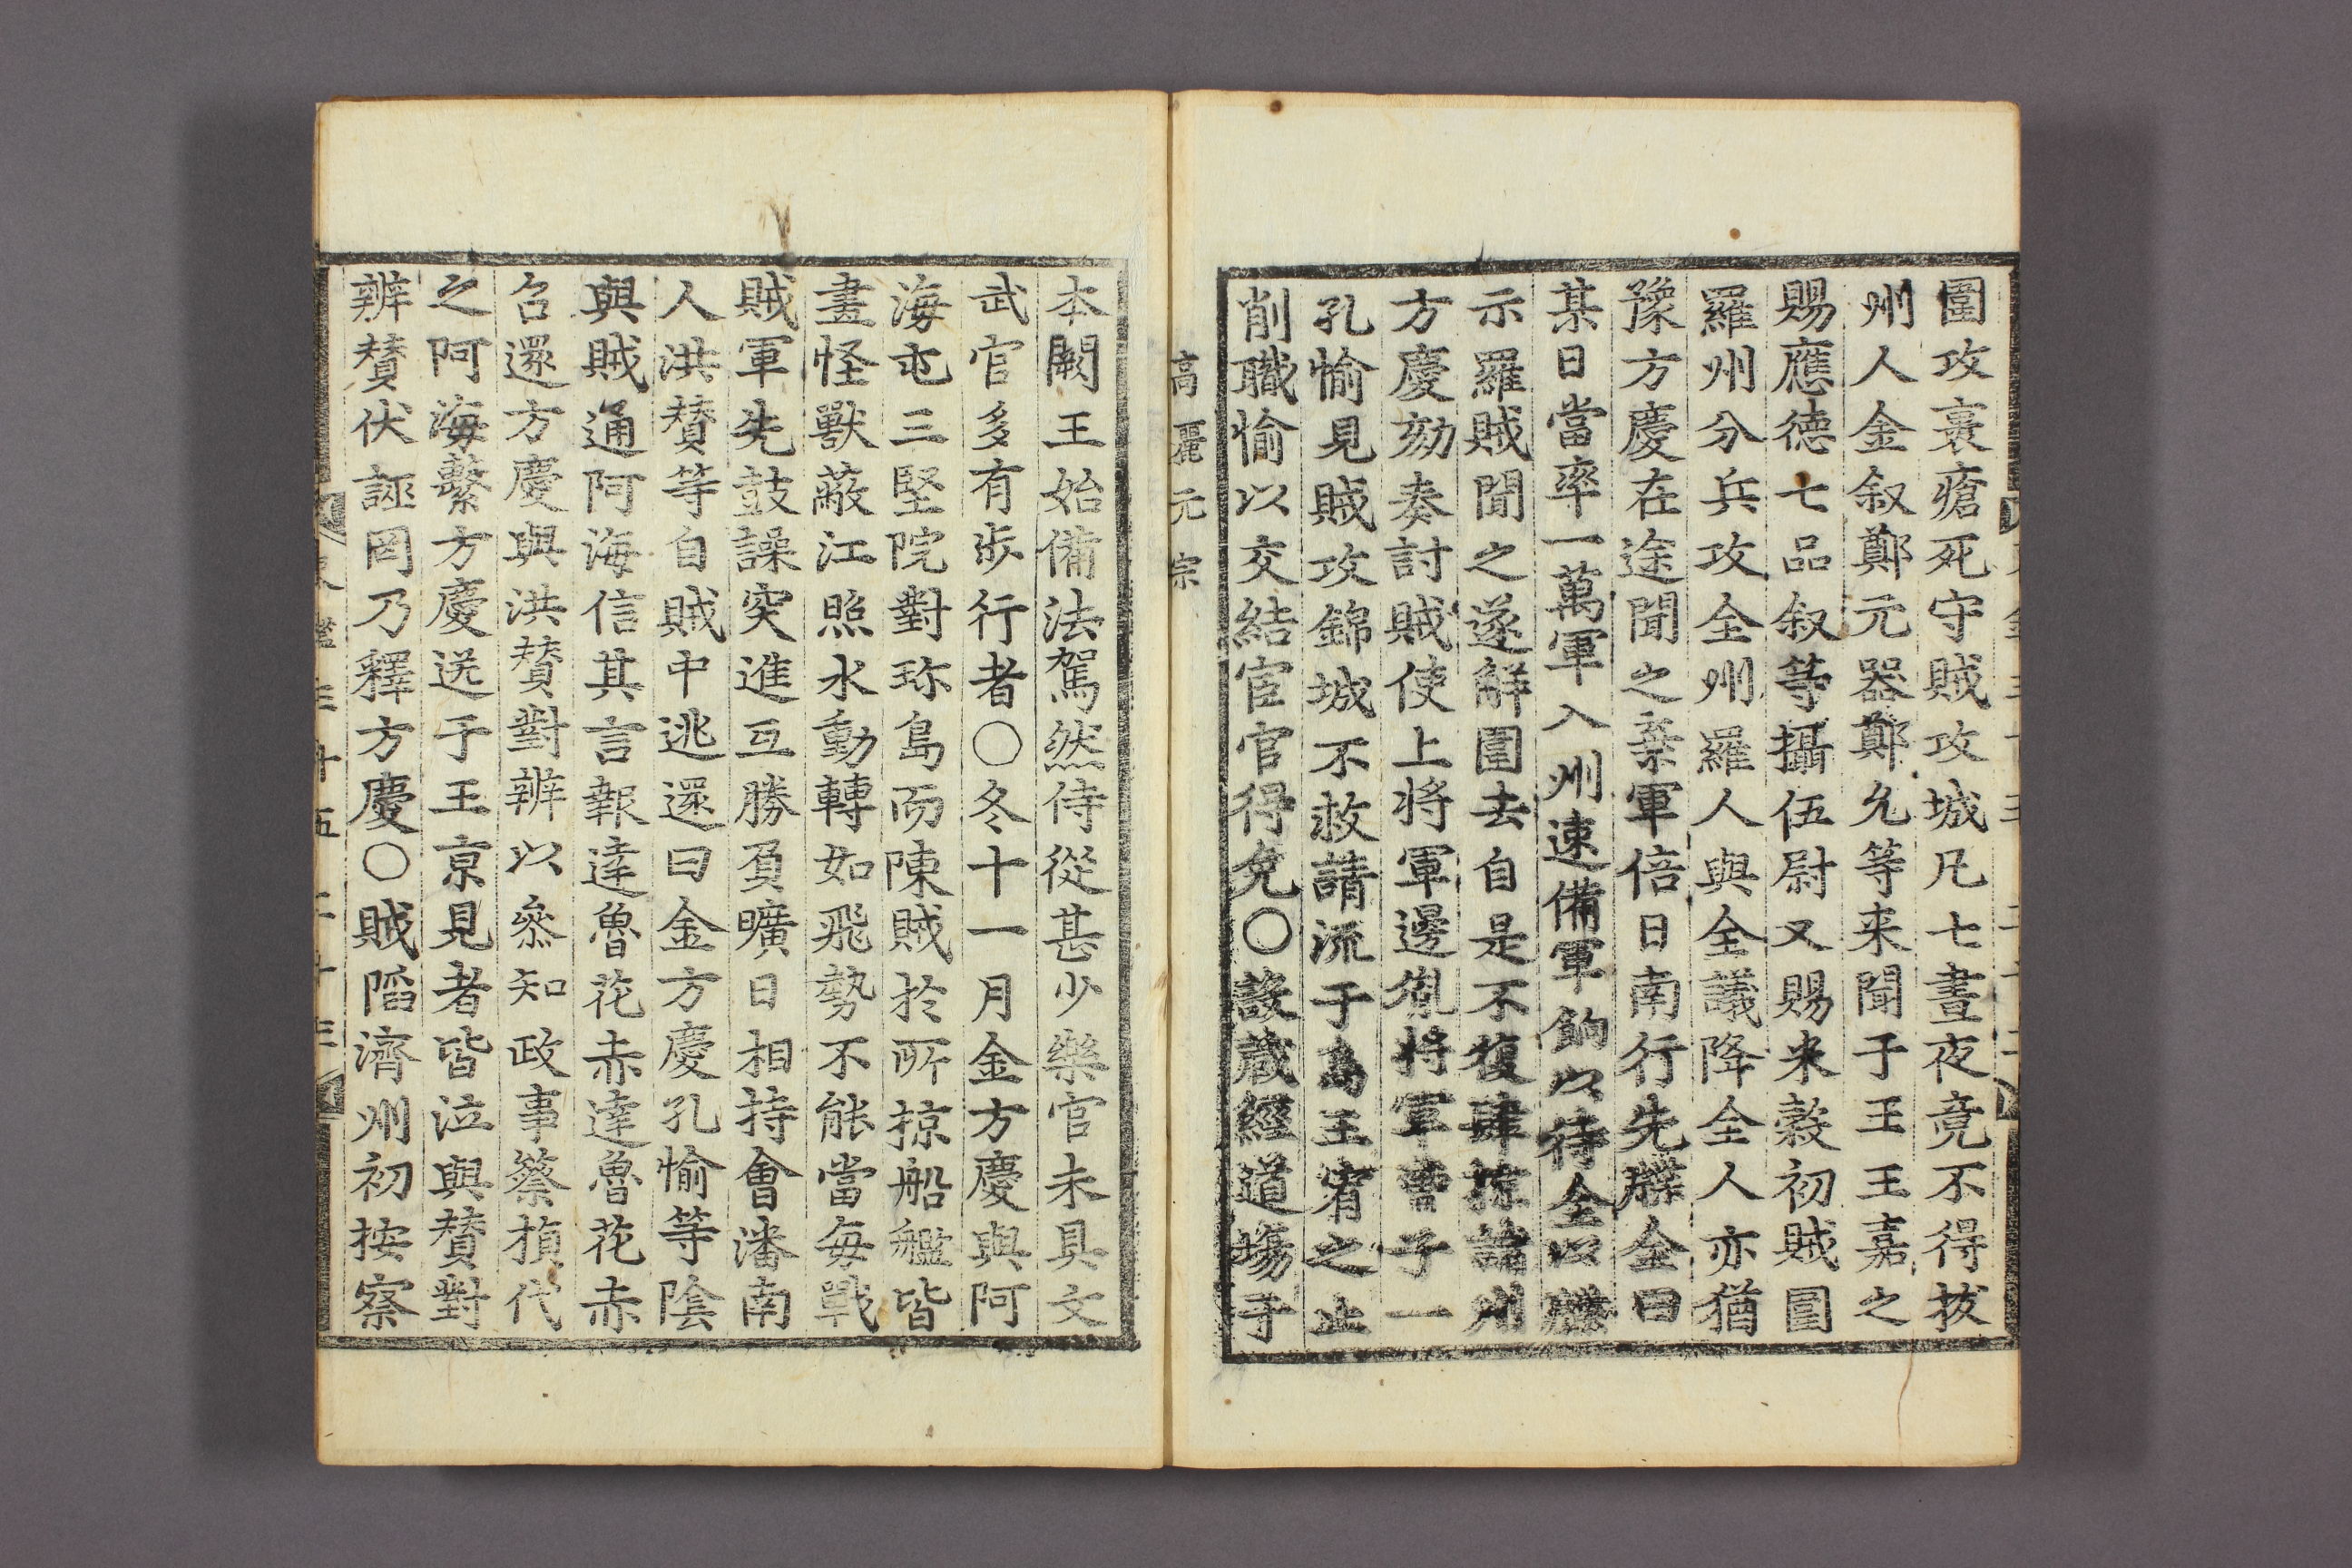 圍攻裹瘡死守賊攻城凡七晝夜竟不得拔
州人金叙鄭元器鄭允等来聞于王王嘉之
賜應德七品叙等攝伍尉又賜米穀初賊圍
羅州分兵攻全州羅人與全議降全人亦猶
豫方慶在途聞之棄軍倍日南行先牒全曰
某日當率一萬軍入州速備軍餉以待全以牒
示羅賊聞之遂解圍去自是不復肆掠諸州
方慶劾奏討賊使上將軍邊胤將軍曹子一
孔愉見賊攻錦城不救請流于島王宥之止
削職愉以交結宦官得免〇設蔵經道場于
高麗元宗
本闕王始備法駕然侍從甚少樂官未具文
武官多有步行者〇冬十一月金方慶與阿
海屯三堅院對珎島而陳賊於所掠船艦皆
畫怪獸蔽江照水動轉如飛勢不能當每戰
賊軍先鼓譟突進互勝負曠日相持會潘南
人洪賛等自賊中逃還曰金方慶孔愉等陰
與賊通阿海信其言報達魯花赤達魯花赤
召還方慶與洪賛對辨以叅知政事蔡楨代
之阿海繫方慶送于王京見者皆泣與賛對
辨賛伏誣罔乃釋方慶〇賊陷濟州初按察